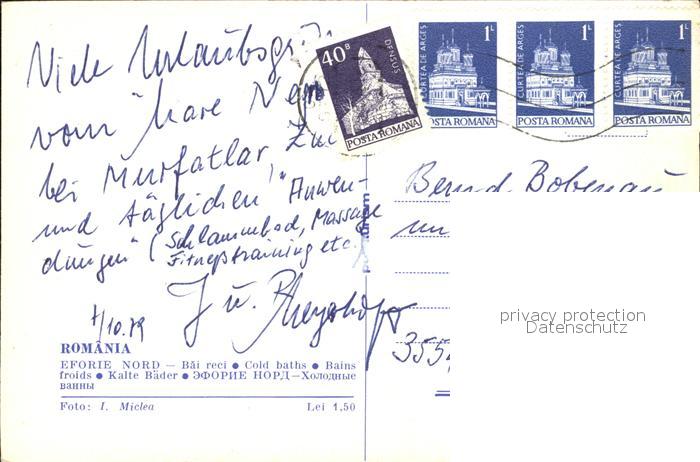 Viele Urlaubsgrü
vom "Mare Neg
bei Murfatlar, Zui
und täglichen "Anwen-
dungen" (Schlammbad, Massage
Fitneßtraining etc.
J u.
1/10.79
ROMÂNIA
EFORIE NORD — Băi reci ● Cold baths ● Bains
froids ● Kalte Bäder ● ЭФОРИЕ НОРД—Холодные
ванны
Foto: I. Miclea Lei 1,50
40B
DENSUS
POSTA ROMANA
1L
CURTEA DE ARGES
POSTA ROMANA
1L
CURTEA DE ARGES
POSTA ROMANA
1L
CURTEA DE ARGES
POSTA ROMANA
Bernd Bobenau
un
355
privacy protection
Datenschutz